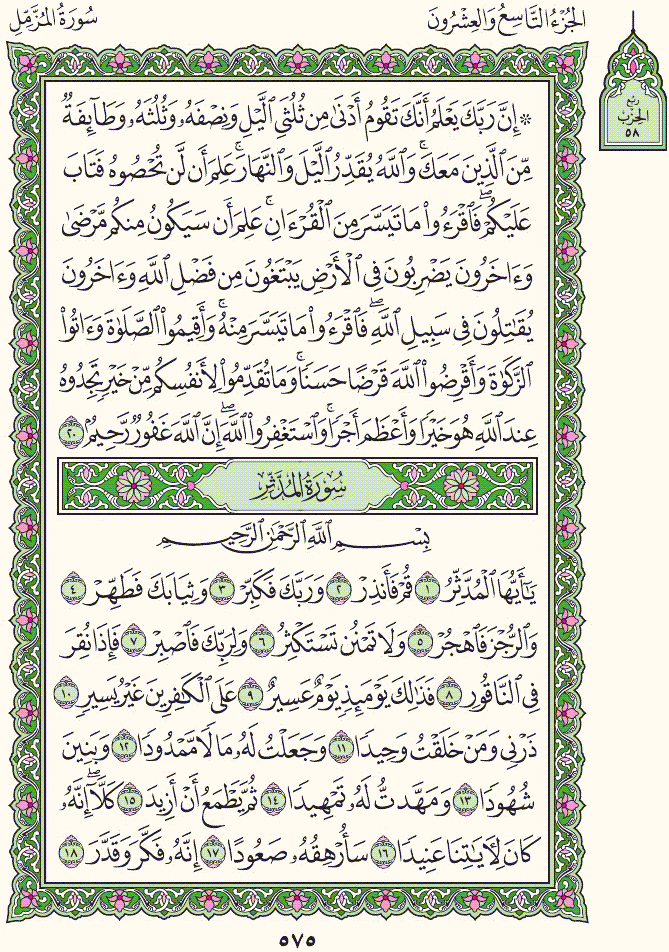 الجُزْءُ التَّاسِعُ وَالعِشْرُونَ
سُورَةُ المُزَّمِّلِ
رُبع
الحِزْب
٥٨
۞ إِنَّ رَبَّكَ يَعْلَمُ أَنَّكَ تَقُومُ أَدْنَىٰ مِن ثُلُثَيِ ٱلَّيْلِ وَنِصْفَهُۥ وَثُلُثَهُۥ وَطَآئِفَةٌ
مِّنَ ٱلَّذِينَ مَعَكَۚ وَٱللَّهُ يُقَدِّرُ ٱلَّيْلَ وَٱلنَّهَارَۚ عَلِمَ أَن لَّن تُحْصُوهُ فَتَابَ
عَلَيْكُمْۖ فَٱقْرَءُوا۟ مَا تَيَسَّرَ مِنَ ٱلْقُرْءَانِۚ عَلِمَ أَن سَيَكُونُ مِنكُم مَّرْضَىٰ
وَءَاخَرُونَ يَضْرِبُونَ فِى ٱلْأَرْضِ يَبْتَغُونَ مِن فَضْلِ ٱللَّهِ وَءَاخَرُونَ
يُقَٰتِلُونَ فِى سَبِيلِ ٱللَّهِۖ فَٱقْرَءُوا۟ مَا تَيَسَّرَ مِنْهُۚ وَأَقِيمُوا۟ ٱلصَّلَوٰةَ وَءَاتُوا۟
ٱلزَّكَوٰةَ وَأَقْرِضُوا۟ ٱللَّهَ قَرْضًا حَسَنًاۚ وَمَا تُقَدِّمُوا۟ لِأَنفُسِكُم مِّنْ خَيْرٍ تَجِدُوهُ
عِندَ ٱللَّهِ هُوَ خَيْرًا وَأَعْظَمَ أَجْرًاۚ وَٱسْتَغْفِرُوا۟ ٱللَّهَۖ إِنَّ ٱللَّهَ غَفُورٌ رَّحِيمٌۢ ٢٠
سُورَةُ المُدَّثِّرِ
بِسْمِ ٱللَّهِ ٱلرَّحْمَٰنِ ٱلرَّحِيمِ
يَٰٓأَيُّهَا ٱلْمُدَّثِّرُ ١ قُمْ فَأَنذِرْ ٢ وَرَبَّكَ فَكَبِّرْ ٣ وَثِيَابَكَ فَطَهِّرْ ٤
وَٱلرُّجْزَ فَٱهْجُرْ ٥ وَلَا تَمْنُن تَسْتَكْثِرُ ٦ وَلِرَبِّكَ فَٱصْبِرْ ٧ فَإِذَا نُقِرَ
فِى ٱلنَّاقُورِ ٨ فَذَٰلِكَ يَوْمَئِذٍ يَوْمٌ عَسِيرٌ ٩ عَلَى ٱلْكَٰفِرِينَ غَيْرُ يَسِيرٍ ١٠
ذَرْنِى وَمَنْ خَلَقْتُ وَحِيدًا ١١ وَجَعَلْتُ لَهُۥ مَالًا مَّمْدُودًا ١٢ وَبَنِينَ
شُهُودًا ١٣ وَمَهَّدتُّ لَهُۥ تَمْهِيدًا ١٤ ثُمَّ يَطْمَعُ أَنْ أَزِيدَ ١٥ كَلَّآۖ إِنَّهُۥ
كَانَ لِءَايَٰتِنَا عَنِيدًا ١٦ سَأُرْهِقُهُۥ صَعُودًا ١٧ إِنَّهُۥ فَكَّرَ وَقَدَّرَ ١٨
٥٧٥